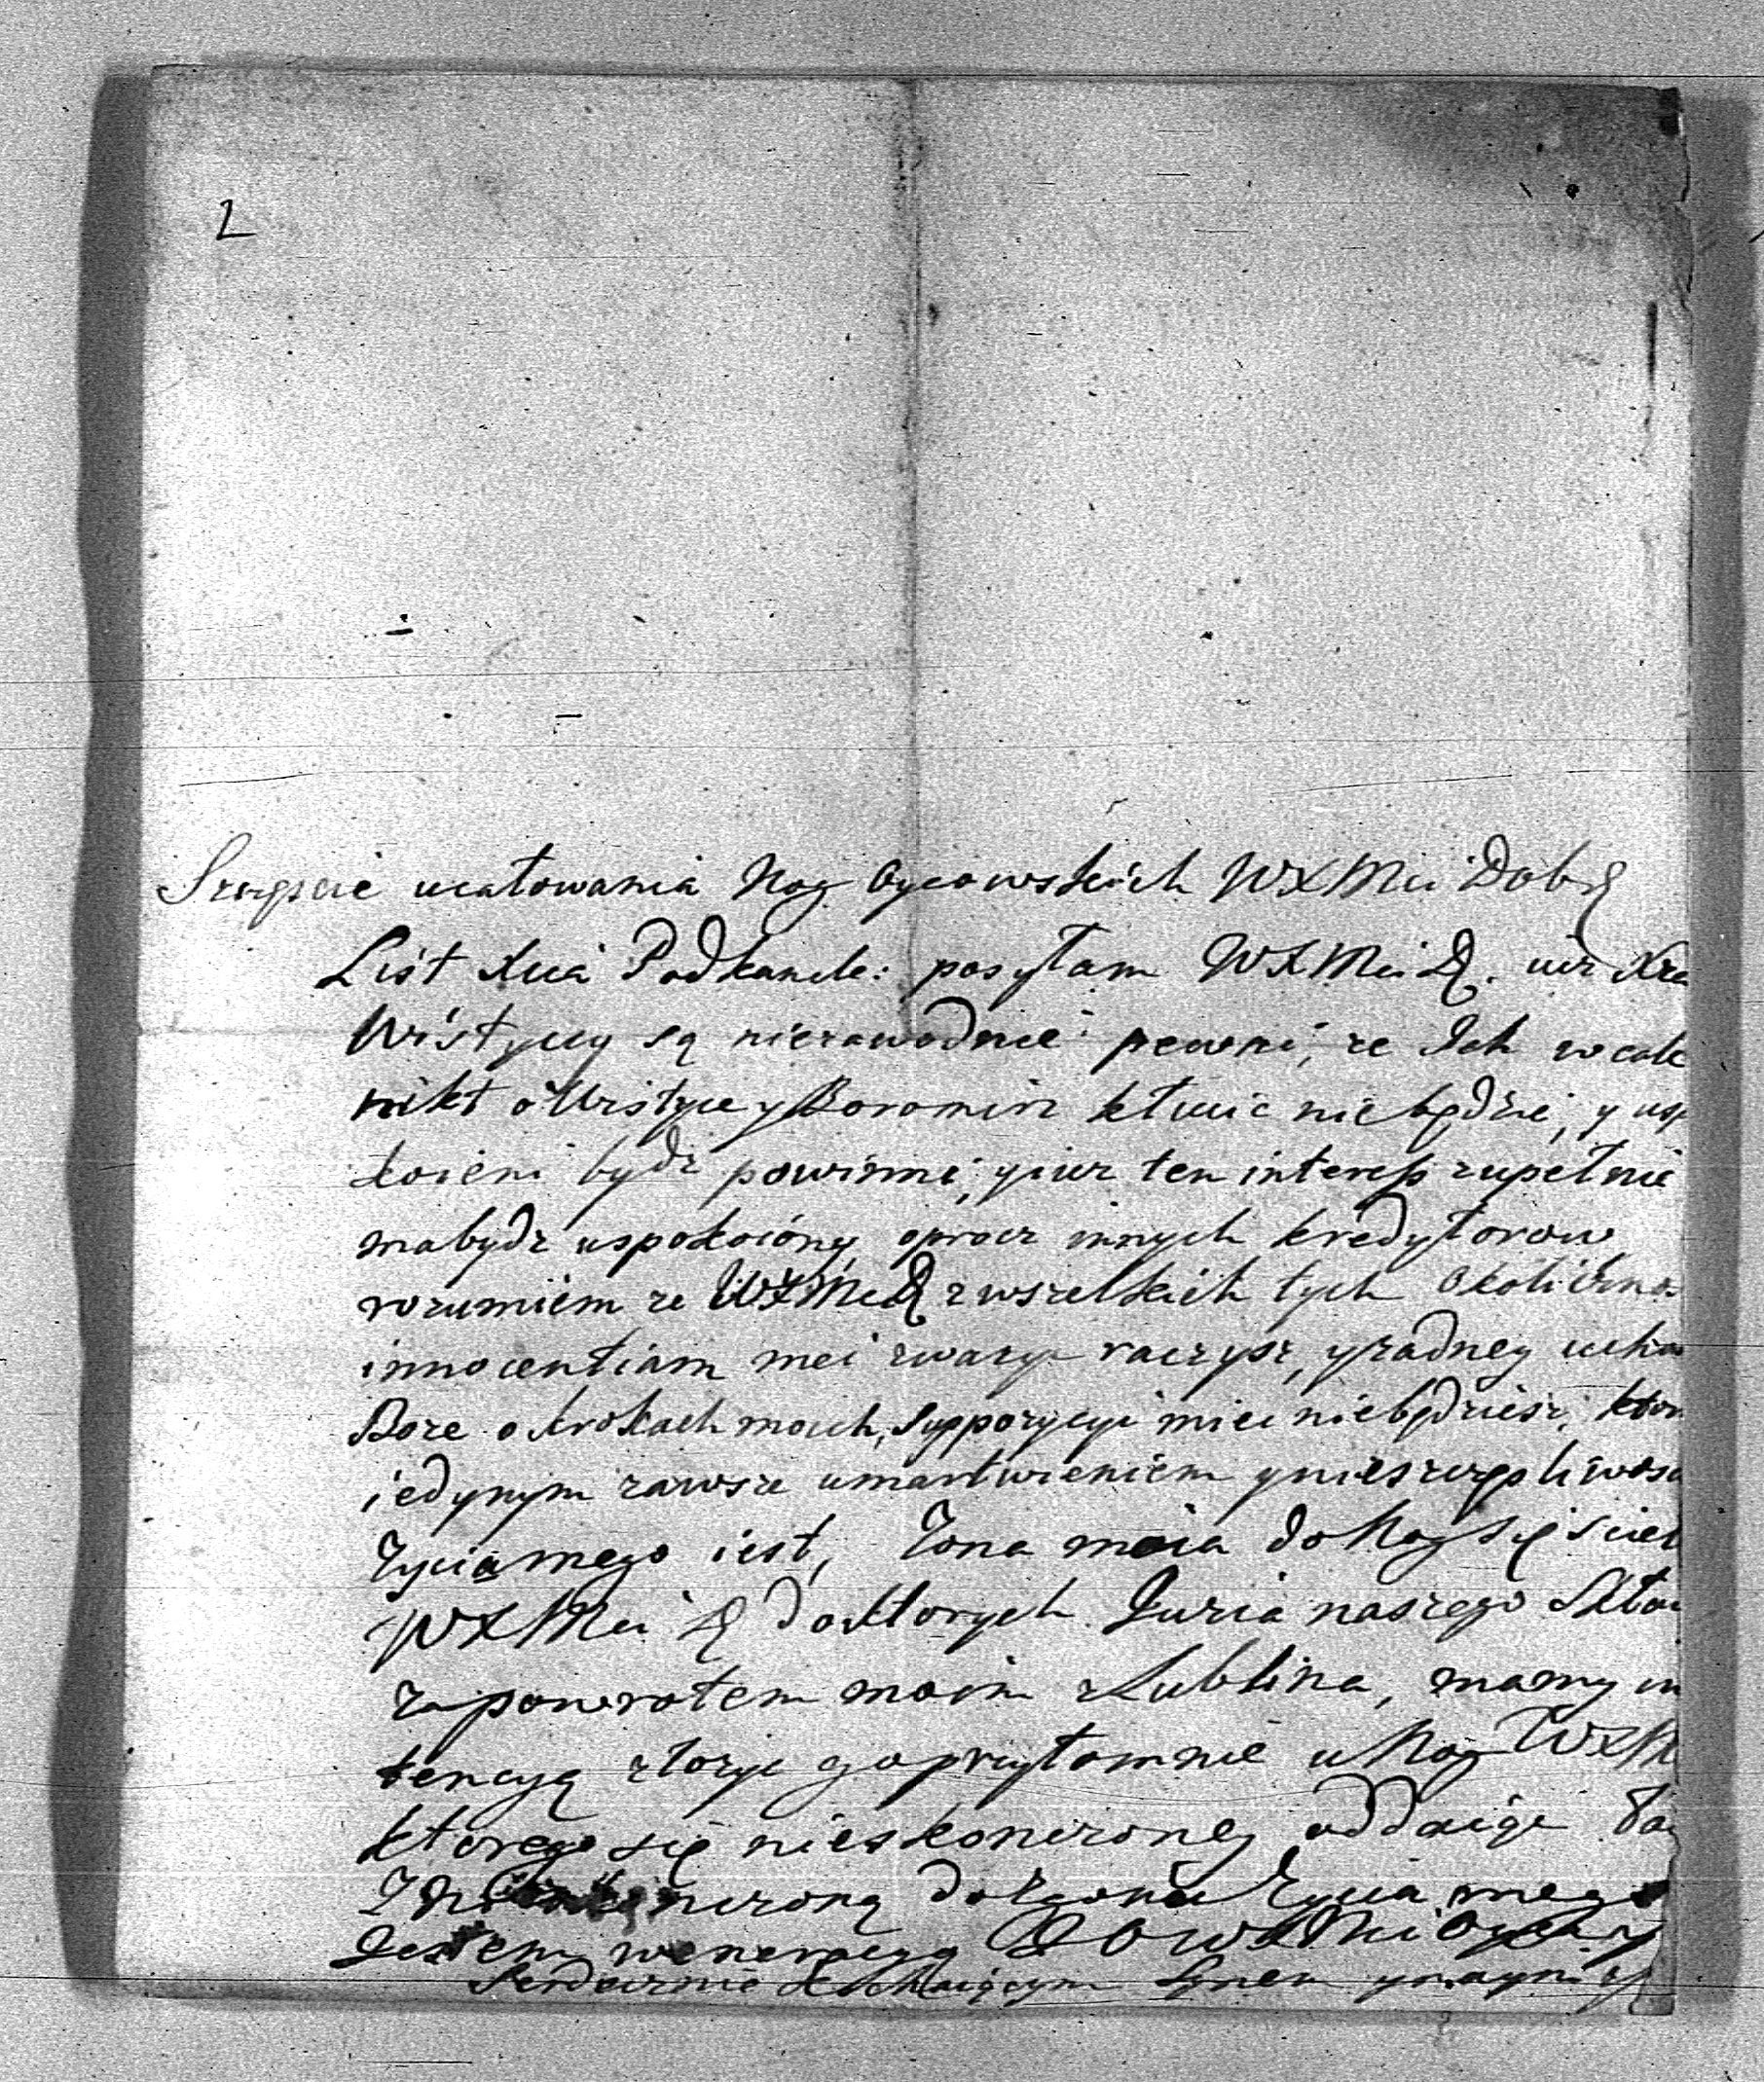 2
Szczęscie ucałowania Nog Oycowskich WXMci Dobr
List Xcia Podkancle: posyłam WXMci D. iuz
Wistycy są niezawodnie pewni, ze Ich wcale
nikt o Wistycy y Boromin kłucic niebędzie, y usp
koieni bydz powinni, y iuz ten interess zupełnie
mabydz uspokoióny, oprocz innych kredytorow
rozumiem ze WXMci D z wszelkich tych Okolicznos
innocentiam mei zwazyc raczysz, y zadney ucho
Boze o krokach moich, suppozycyi miec niebędziesz, ktor
iedynym zawsze umartwieniem y nieszczęsliwosc
Zycia mego iest, Zona moia do Nog się sciel
WXMci D do ktorych Juzia naszego
za powrotem moim z Lublina, mamy in
tencyą złozyc go przytomnie u Nog WXM
ktorego się nieskonczoney oddaięc
Z nieskonczoną do zgonu Zycia mego
Jestem weneracyą WXMci Oyca
Serdecznie kochaiącym Synem y nayni